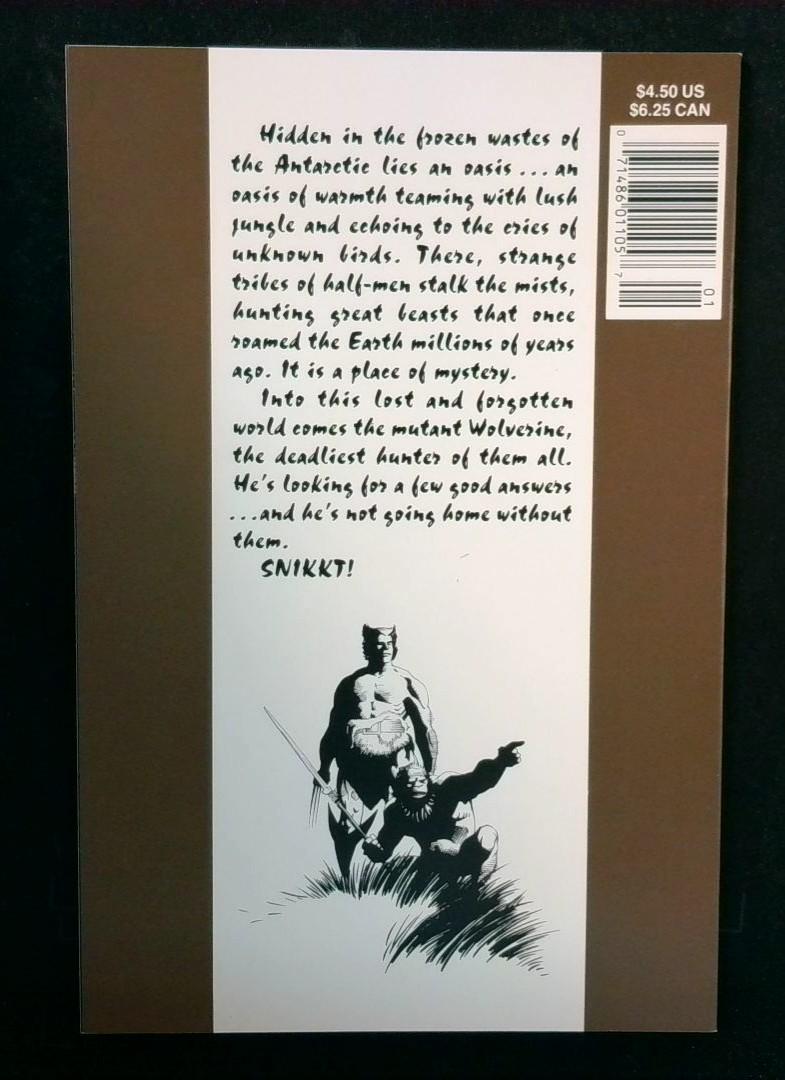 $4.50 US
$6.25 CAN
Hidden in the frozen wastes of
the Antarctic lies an oasis ... an
oasis of warmth teaming with lush
jungle and echoing to the cries of
unknown birds. There, strange
tribes of half-men stalk the mists,
hunting great beasts that once
roamed the Earth millions of years
ago. It is a place of mystery.
Into this lost and forgotten
world comes the mutant Wolverine,
the deadliest hunter of them all.
He's looking for a few good answers
...and he's not going home without
them.
SNIKKT!
0 71486 01105 7
01